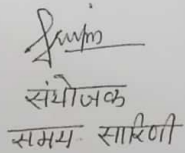 संयोजक
समय सारिणी